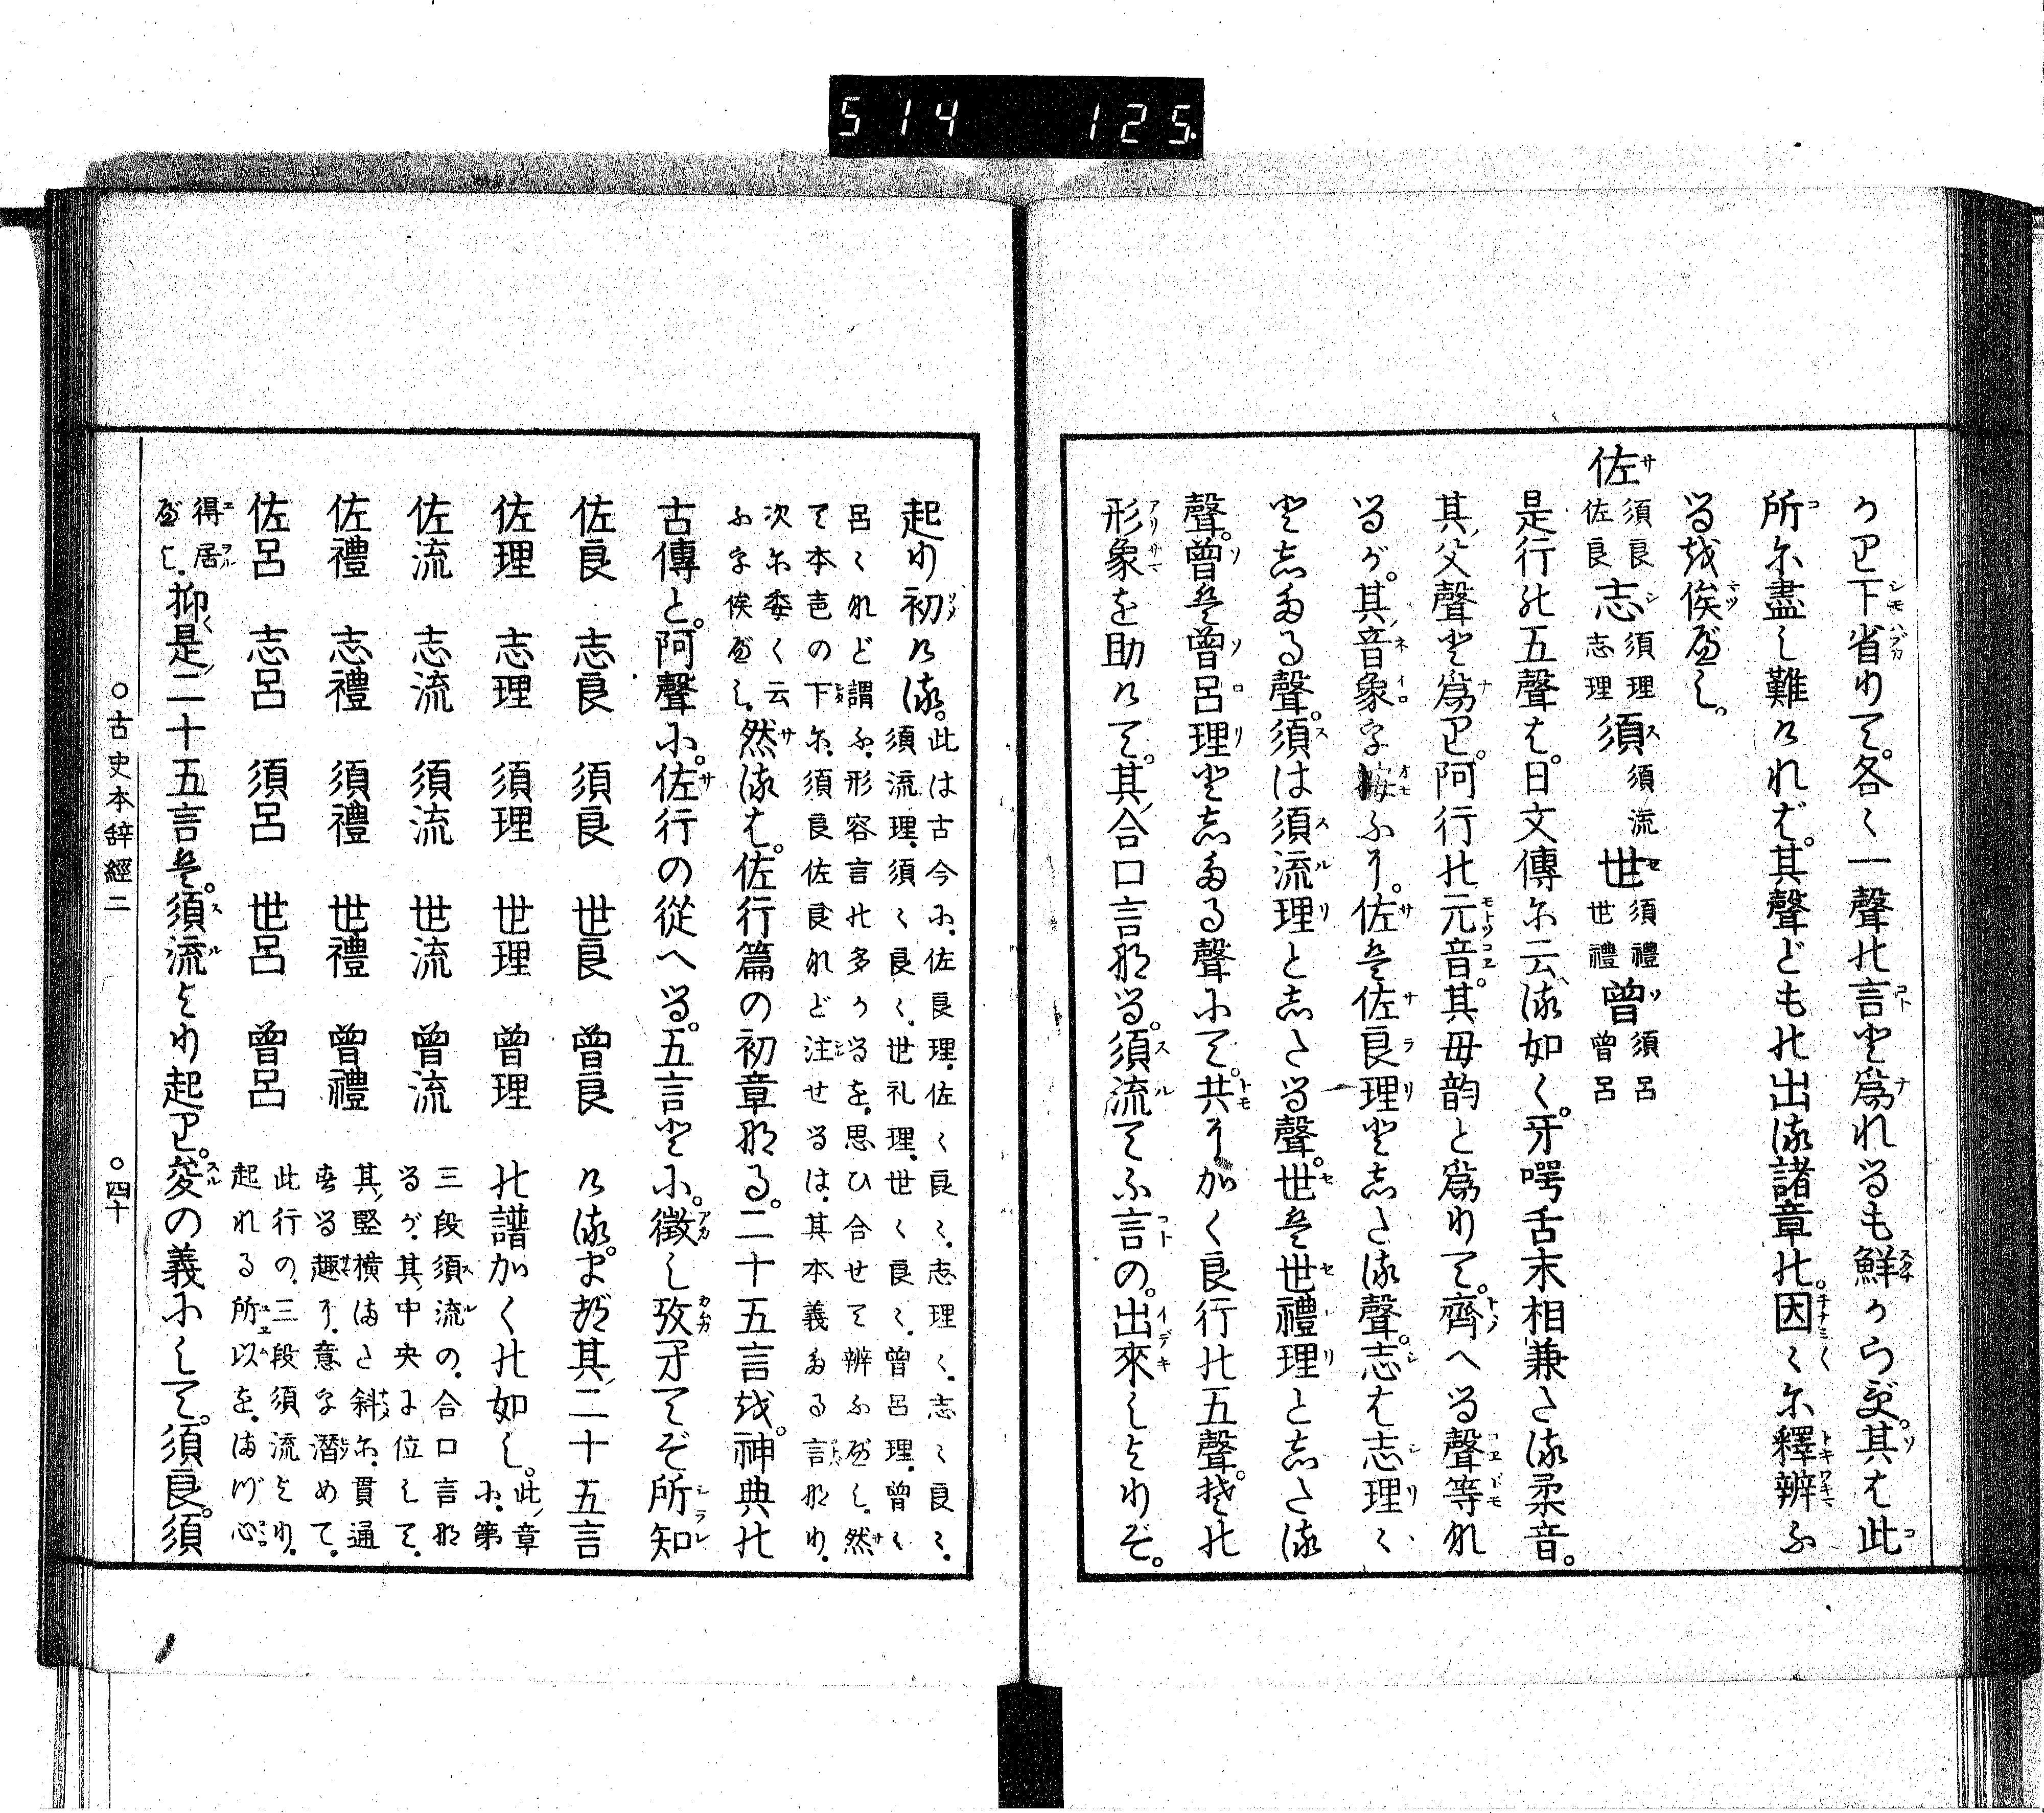 514 125
り下省りて各〻一聲の言と爲れるも鮮からず其は此
所に盡し難ければ其聲どもの出る諸章の因〻に釋辨ふ
るを俟べし
佐 須良 佐良 志 須理 志理 須 須流 世 須禮 世禮 曾 須呂 曾呂
是行の五聲は日文傳に云る如く牙咢舌末相兼たる柔音
其父聲と爲り阿行の元音其母韵と爲りて齊へる聲等な
るが其音象を按ふに佐は佐良理としたる聲志は志理〻
としたる聲須は須流理としたる聲世は世禮理としたる
聲曾は曾呂理としたる聲にて共にかく良行の五聲その
形象を助けて其合口言なる須流てふ言の出來しよりぞ
起り初ける
此は古今に佐良理佐〻良〻志理〻志〻良〻
須流理須〻良〻世礼理世〻良〻曾呂理曾〻
呂〻など謂ふ形容言の多かるを思ひ合せて辨ふべし然
て本書の下に須良佐良など注せるは其本義なる言なり
次に委く云
ふを俟べし
然るは佐行篇の初章なる二十五言を神典の
古傳と阿聲に佐行の從へる五言とに徴し攷牙てぞ所知
佐良 志良 須良 世良 曾良 ける まづ其二十五言
佐理 志理 須理 世理 曾理 の譜かくの如し 此章に第
佐流 志流 須流 世流 曾流 三段須流の合口言なるが其中央に位して
佐禮 志禮 須禮 世禮 曾禮 其竪横また斜に貫通せる趣に意を潜めて
佐呂 志呂 須呂 世呂 曾呂 此行の三段須流より起れる所以をまづ心
得居べし 抑是二十五言は須流より起り の義にして須良須
○古史本辭經二 ○四十